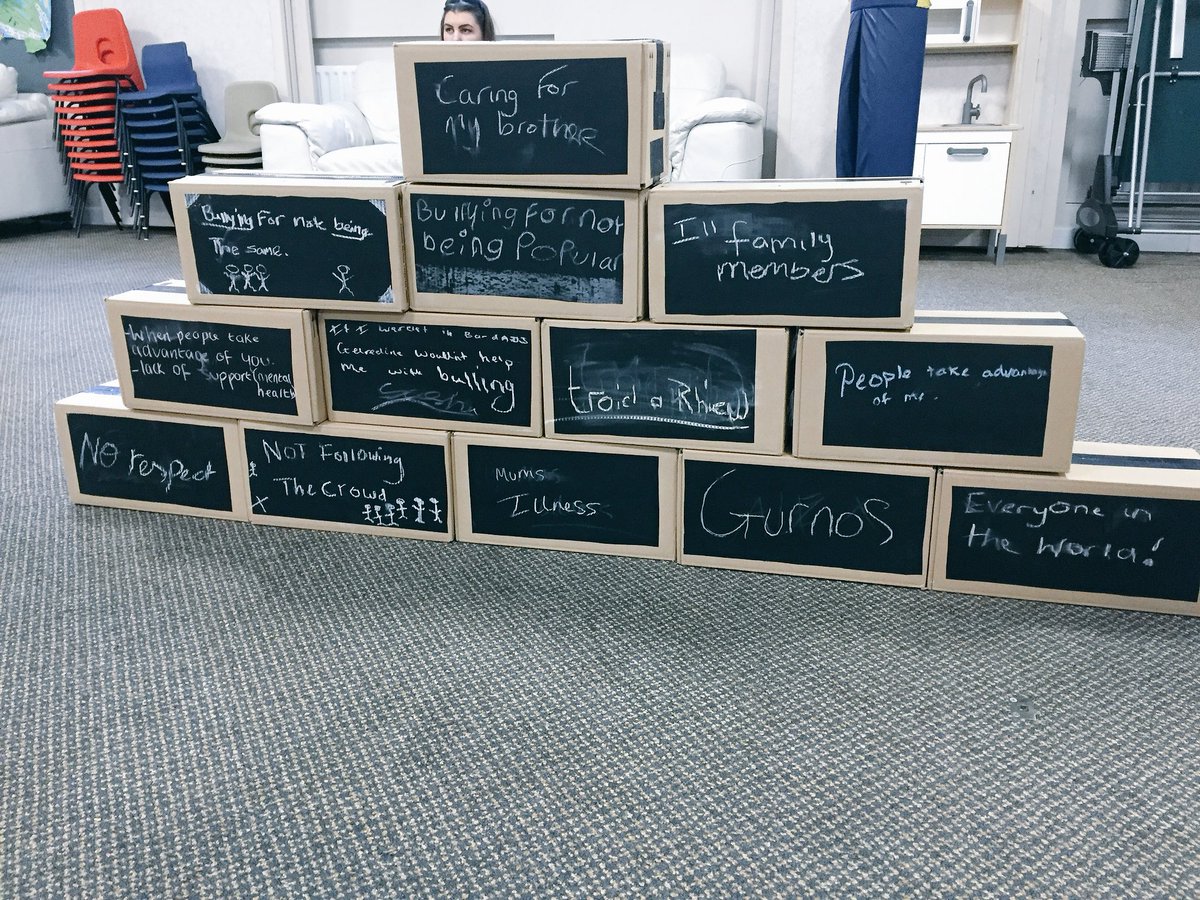 Caring For
My brother
Bullying For not being
The same.
Bullying For not
being Popular
Ill family
members
-When people take
advantage of you.
-lack of support(mental
health
If I
help
me with bulling
troid a Rhiew
People take advantage
of me.
NO respect
NOT Following
The Crowd
Mums
Illness
Gurnos
Everyone in
the World!